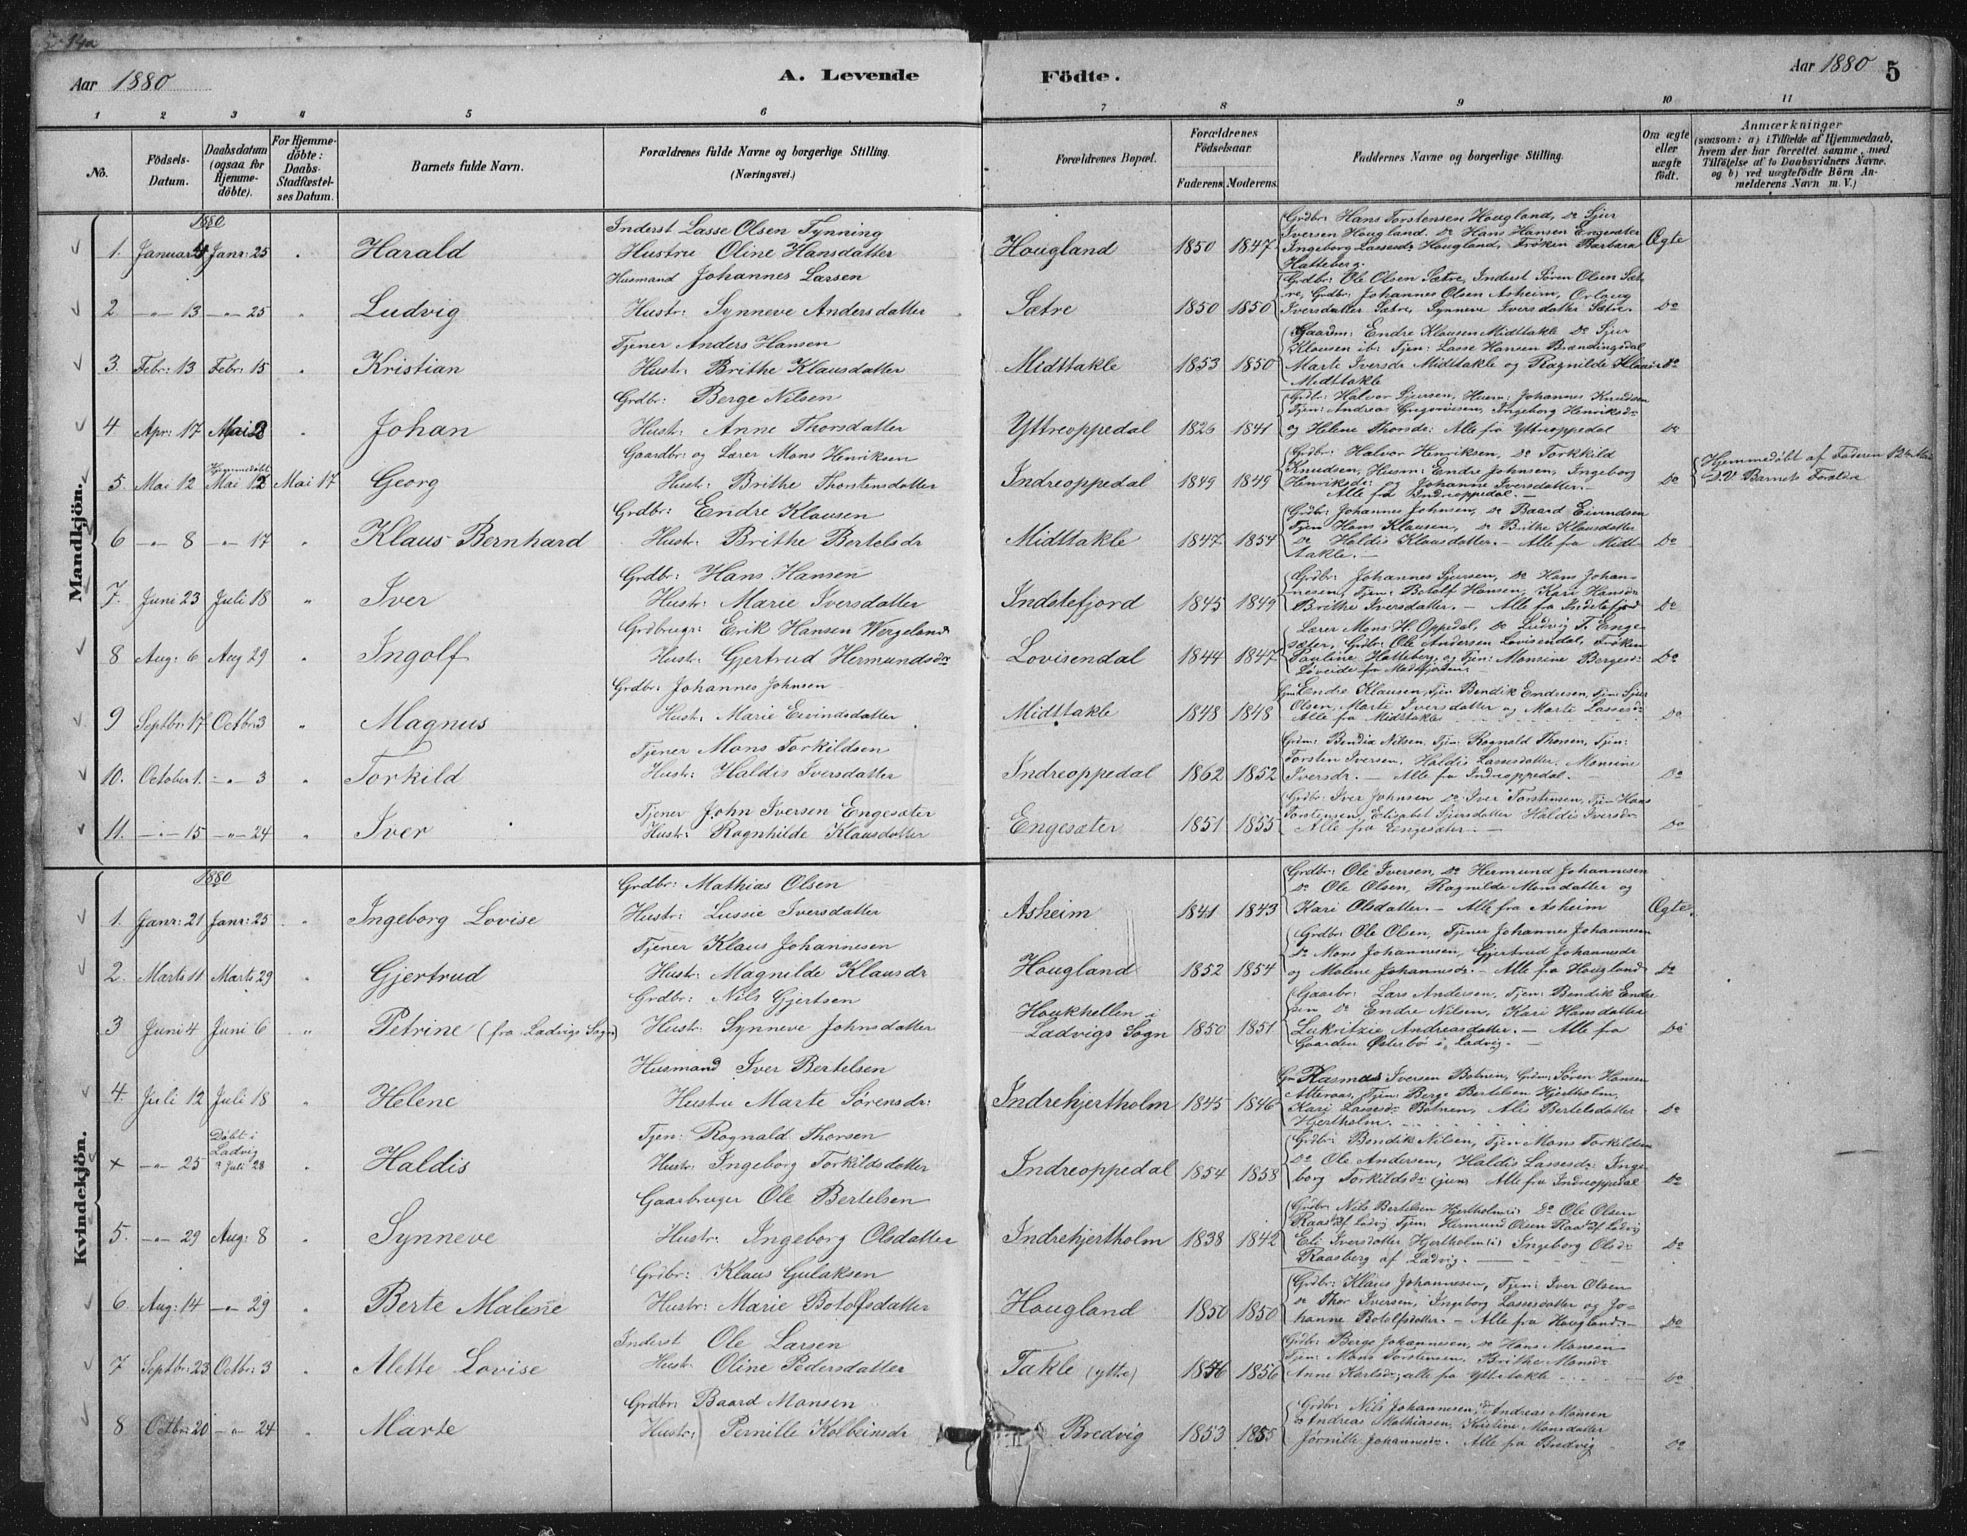 Aar 1880
A. Levende
Födte.
Aar 1880
5
1 2 3 4 5 6 7 8 9 10 11
No.
Födsels-Datum.
Daabsdatum (ogsaa for Hjemmedöbte).
For Hjemmedöbte: Daabs-Stadfæstelses Datum.
Barnets fulde Navn.
Forældrenes fulde Navne og borgerlige Stilling. (Næringsvei.)
Forældrenes Bopæl.
Forældrenes Födselsaar.
Faderens. Moderens.
Faddernes Navne og borgerlige Stilling.
Om ægte eller uægte födt.
Anmærkninger
(saasom: a) i Tilfælde af Hjemmedaab, hvem der har forrettet samme, med Tilföielse af to Daabsvidners Navne. og b) ved uægtefödte Börn Anmelderens Navn m. V.)
Mandkjön.
1880
Inderst Lasse Olsen Tynning
1. Januar 4 Janr: 25 Harald Hustru Oline Hansdatter Hougland 1850 1847 Ægte
Grdbr: Hans Torstensen Hougland, Do Sjur
Iversen Hougland. Do Hans Hansen Engesæter
Ingeborg Lassesdr Hougland, Frøken Barbara
Hatteberg.
Husmand Johannes Larsen
2 -"- 13 -"- 25 Ludvig Hustr: Synneve Andersdatter Sætre 1850 1850 Do
Grdbr: Ole Olsen Sætre, Inderst Sören Olsen Sæt-
re, Grdbr: Johannes Olsen Asheim, Orlaug
Iversdatter Sætre, Synneve Iversdatter Sætre.
Tjener Anders Hansen
3. Febr: 13 Febr: 15 Kristian Hustr: Brithe Klausdatter Midttakle 1853 1850 Do
Gaardm: Endre Klausen Midttakle Do Sjur
Klausen ib: Tjen: Lasse Hansen Brændingsdal
Marte Iversdr Midttakle og Ragnilde
Midttakle
Grdbr: Berge Nilsen
4 Apr: 17 Mai 2 Johan Hustr: Anne Thorsdatter Yttreoppedal 1826 1841 Do
Grdbr: Halvor Sjursen, Husm: Johannes Knudsen
Tjen: Andreas Gregoriussen, Ingeborg Henriksdr
og Helene Thorsdr: Alle fra Yttreoppedal
Gaardbr: og Lærer Mons Henriksen
5. Mai 12 Hjemmedöbt Mai 12 Mai 17 Georg Hust: Brithe Thorstensdatter Indreoppedal 1849 1849 Do
Grdbr: Halvor Henriksen, Do Torkkild
Knudsen, Husm: Endre Johnsen, Ingeborg
Henriksdr: og Johanne Iversdatter.
Alle fra Indreoppedal.
Hjemmedöbt af Faderen 12te Mai
D.V. Barnets Forældre
Grdbr: Endre Klausen
6 -"- 8 -"- 17 Klaus Bernhard Hust: Brithe Bertelsdr Midttakle 1847 1854 Do
Grdbr: Johannes Johnsen, Do Baard Eivindsen
Tjen Hans Klausen, Do Brithe Klausdatter
Do Haldis Klausdatter. - Alle fra Midt-
takle.
Grdbr: Hans Hansen
7. Juni 23 Juli 18 Iver Hustr: Marie Iversdatter Indstefjord 1845 1849 Do
Grdbr: Johannes Sjursen, Do Hans Johan-
nesen, Tjen: Botolf Hansen, Kari Hansdr
Brithe Iversdatter. - Alle fra Indstefjord
Grdbruger: Erik Hansen Wergeland
8 Aug: 6 Aug 29 Ingolf Hust: Gjertrud Hermundsdr Lovisendal 1844 1847 Do
Lærer Mons H. Oppedal, Do Ludvig T. Enge-
sæter, Grdbr: Ole Andersen Lovisendal, Frøken
Pauline Hatteberg, og Tjen: Monsine Bergesdr
Grdbr: Johannes Johnsen
9 Septbr: 17 Octbr: 3 Magnus Hust: Marie Eivindsdatter Midttakle 1848 1848 Do
Gm Endre Klausen, Tjen Bendik Endresen, Tjen: Sjur
Olsen, Marte Iversdatter og Marte Lassesdr
Alle fra Midttakle
Tjener Mons Torkildsen
10. October 1. -"- 3 Torkild Hustr: Haldis Iversdatter Indreoppedal 1862 1852 Do
Grdm: Bendix Nilsen, Tjen: Rognald Thorsen, Tjen:
Torsten Iversen, Haldis Lassesdatter, Monsine
Iversdr. - Alle fra Indreoppedal.
Tjener John Iversen Engesæter
11. -"- 15 -"- 24 Iver Hust: Ragnhilde Klausdatter Engesæter 1851 1855 Do
Grdbr: Iver Johnsen Do Iver Torstensen, Tjen Hans
Torstensen, Elisabet Sjursdatter Haldis Iversdr
Alle fra Engesæter.
Kvindekjön.
1880
Grdbr: Mathias Olsen
1. Janr: 21 Janr: 25 Ingeborg Lovise Hustr: Lussie Iversdatter Asheim 1841 1843 Ægte.
Grdbr: Ole Iversen, Do Hermund Johannesen
Do Ole Olsen, Ragnilde Monsdatter og
Kari Olsdatter. - Alle fra Asheim
Tjener Klaus Johannesen
2. Marts 11 Marts 29 Gjertrud Hustr: Magnilde Klausdr Hougland 1852 1854 Do
Grdbr: Ole Olsen, Tjener Johannes Johannesen
Do Mons Johannesen, Gjertrud Johannesdr
og Malene Johannesdr. - Alle fra Hougland
Grdbr: Nils Gjertsen
3 Juni 4 Juni 6 Petrine (fra Ladvigs Sogn) Hustr: Synneve Johnsdatter Houkhellen i Ladvigs Sogn 1850 1851 Do
Gaarbr: Lars Andersen, Tjen: Bendik Endre
sen Do Endre Nilsen, Kari Hansdatter
Lukritzie Andreasdatter. - Alle fra
Gaarden Østerbö i Ladvig.
Husmand Iver Bertelsen
4. Juli 12 Juli 18 Helene Hustru Marte Sørensdr: Indrehjertholm 1845 1846 Do
Gm Rasmus Iversen Botnen, Grdm: Sören Hansen
Atteraas, Tjen: Berge Bertelsen Hjertholm,
Kari Lassesdr Botnen, Alis Bertelsdatter
Hjertholm.
Tjen: Rognald Thorsen
x -"- 25 Döbt i Ladvig Juli 28 Haldis Hustr: Ingeborg Torkildsdatter Indreoppedal 1854 1858 Do
Grdbr: Bendik Nilsen, Tjen Mons Torkildsen
Do Ole Andersen, Haldis Lassesdr: Inge-
borg Torkildsdr (jun) Alle fra Indreoppedal
Gaarbruger Ole Bertelsen
5. -"- 29 Aug: 8 Synneve Hustr: Ingeborg Olsdatter Indrehjertholm 1838 1842 Do
Grdbr: Nils Bertelsen Hjertholm(i) Do Ole Olsen
Raas af Ladvig Tjen: Hermund Olsen Raas af Ladvig
Eli Iversdatter, Hjertholm(i) Ingeborg Olsdr
Raasberg af Ladvig.
Grdbr: Klaus Gulaksen
6. Aug: 14 -"- 29 Berte Malene Hustr: Marie Botolfsdatter Hougland 1850 1850 Do
Grdbr: Klaus Johannesen, Tjen: Iver Olsen
Do Thor Iversen, Ingeborg Lassesdatter og Jo-
hanne Botolfsdatter. - Alle fra Hougland.
Inderst Ole Larsen
7 Septbr: 23 Octbr: 3 Alette Lovise Hust: Oline Pedersdatter Takle (yttre) 1856 Do
Grdbr: Berge Johannesen, Do Hans Monsen
Tjen: Mons Torstensen, Brithe Monsdr
Anne Karlsdr; alle fra Yttretakle
Grdbr: Baard Monsen
8 Octbr: 20 -"- 24 Marte Hustr: Pernille Kolbeinsdr Bredvig 1853 1855 Do
Grdbr: Nils Johannesen, Do Andreas Monsen
Do Andreas Mathiasen, Kristine Monsdatter
Jørnille Johannesdr. Alle fra Bredvig